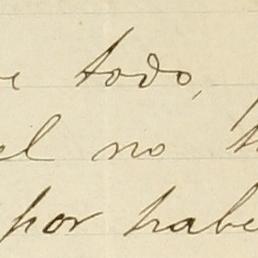 todo,
el no
por habe